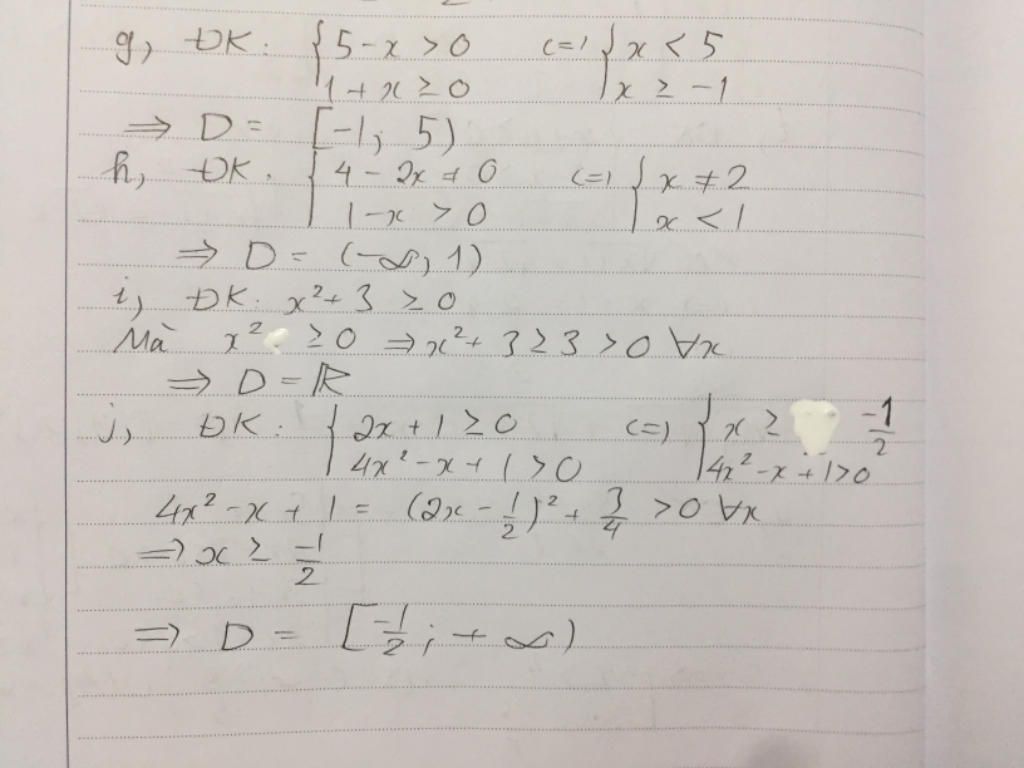 g, ĐK: { 5 - x > 0 <=> { x < 5
1 + x ≥ 0 x ≥ -1
=> D = [-1; 5)
h, ĐK: { 4 - 2x ≠ 0 <=> { x ≠ 2
1 - x > 0 x < 1
=> D = (-∞, 1)
i, ĐK: x² + 3 ≥ 0
Mà x² ≥ 0 => x² + 3 ≥ 3 > 0 ∀x
=> D = ℝ
j, ĐK: { 2x + 1 ≥ 0 <=> { x ≥ -1/2
4x² - x + 1 > 0 4x² - x + 1 > 0
4x² - x + 1 = (2x - 1/2)² + 3/4 > 0 ∀x
=> x ≥ -1/2
=> D = [-1/2; +∞)